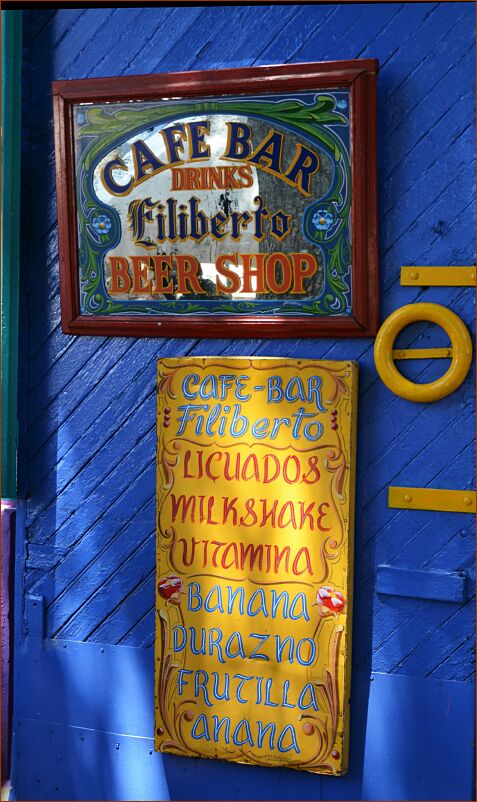 CAFE BAR
DRINKS
Filiberto
BEER SHOP
CAFE-BAR
Filiberto
LICUADOS
MILKSHAKE
VITAMINA
BANANA
DURAZNO
FRUTILLA
ANANA